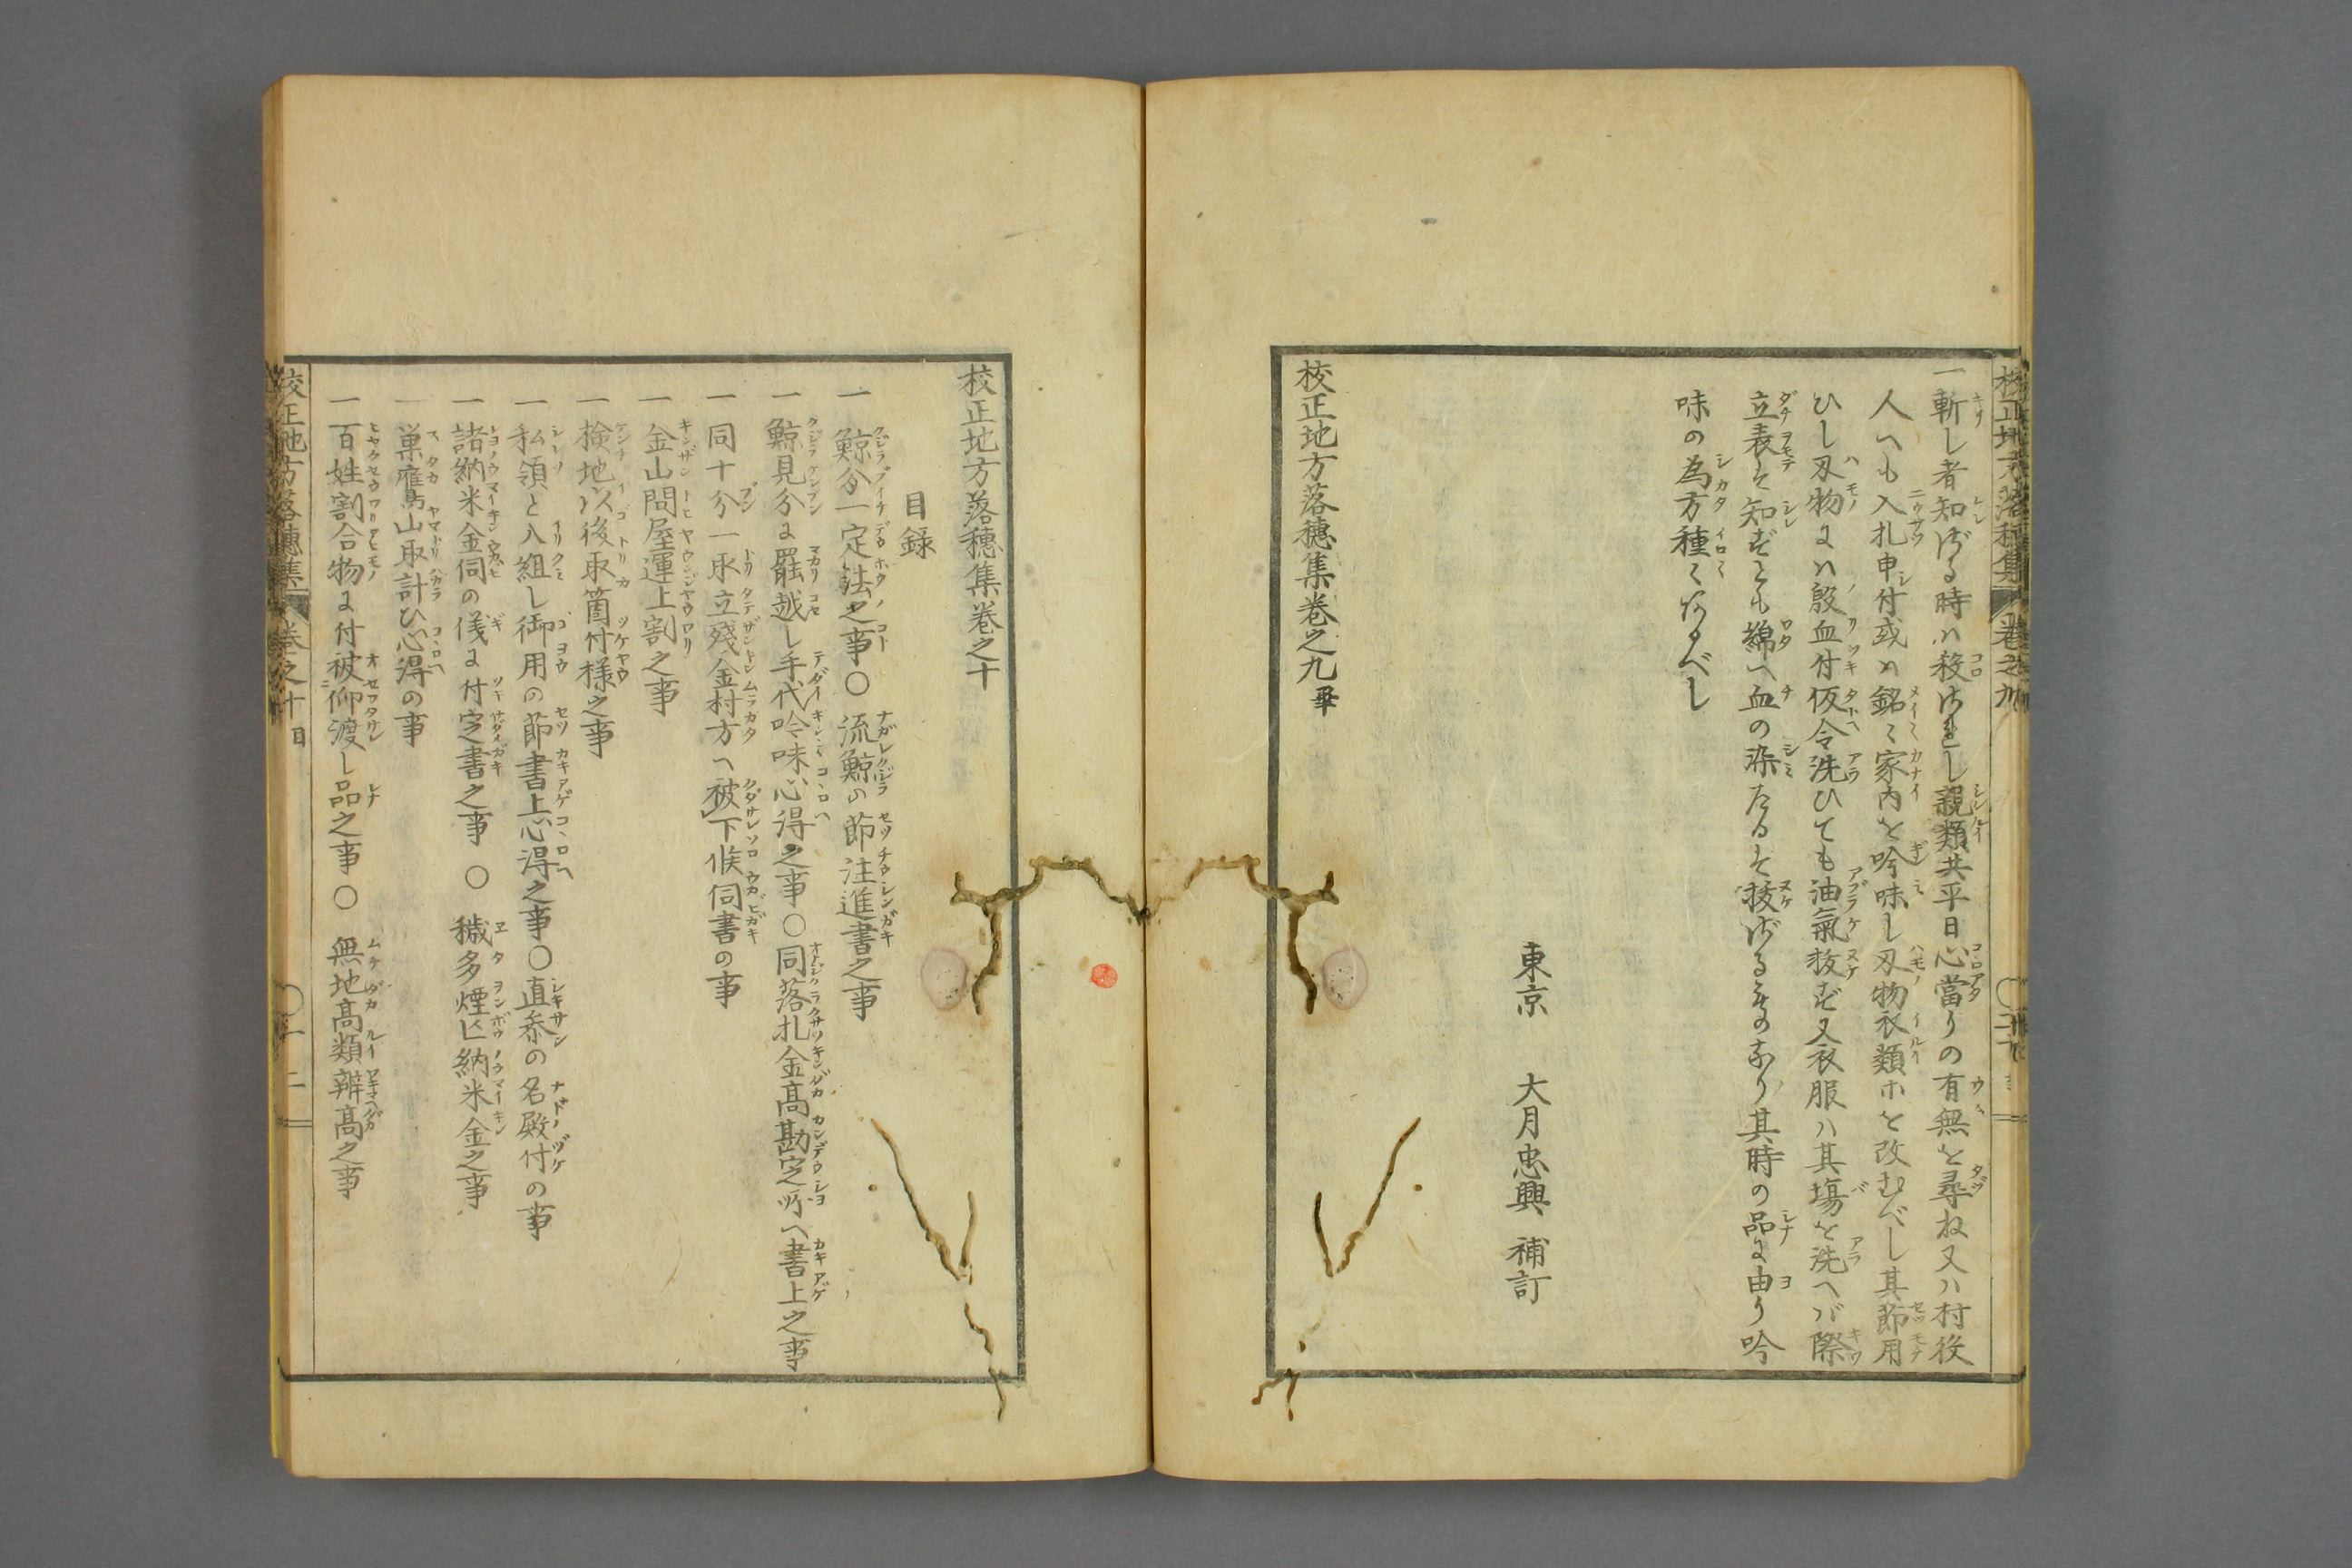 一斬し者知ざる時ハ殺されし親類共平日心當りの有無を尋ね又ハ村後
人へも入札申付或ハ銘々家内を吟味し刄物衣類ホを改むべし其節用
ひし刄物にハ殷血付仮令洗ひても油氣抜ず又衣服ハ其塲を洗へバ際
立表そ知ずとも綿へ血の染たるそ抜ざるもの有り其時の品に由り吟
味の為方種々有べし
東京 大月忠興 補訂
校正地方落穗集卷之九畢
校正地方落穗集卷之十
目録
一 鯨分一定法之事〇流鯨の節注進書之事
一 鯨見分に罷越し手代吟味心得之事〇同落札金髙勘定所へ書上之事
一 同十分一取立殘金村方へ被下候伺書の事
一 金山問屋運上割之事
一 検地以後取箇付様之事
一 私領と入組し御用の節書上心得之事〇直叅の名殿付の事
一 諸納米金伺の儀に付定書之事〇穢多煙亡納米金之事
一 巣鷹山取計ひ心得の事
一 百姓割合物に付被仰渡し品之事〇無地髙類辨髙之事
校正地方落穗集 卷之十目